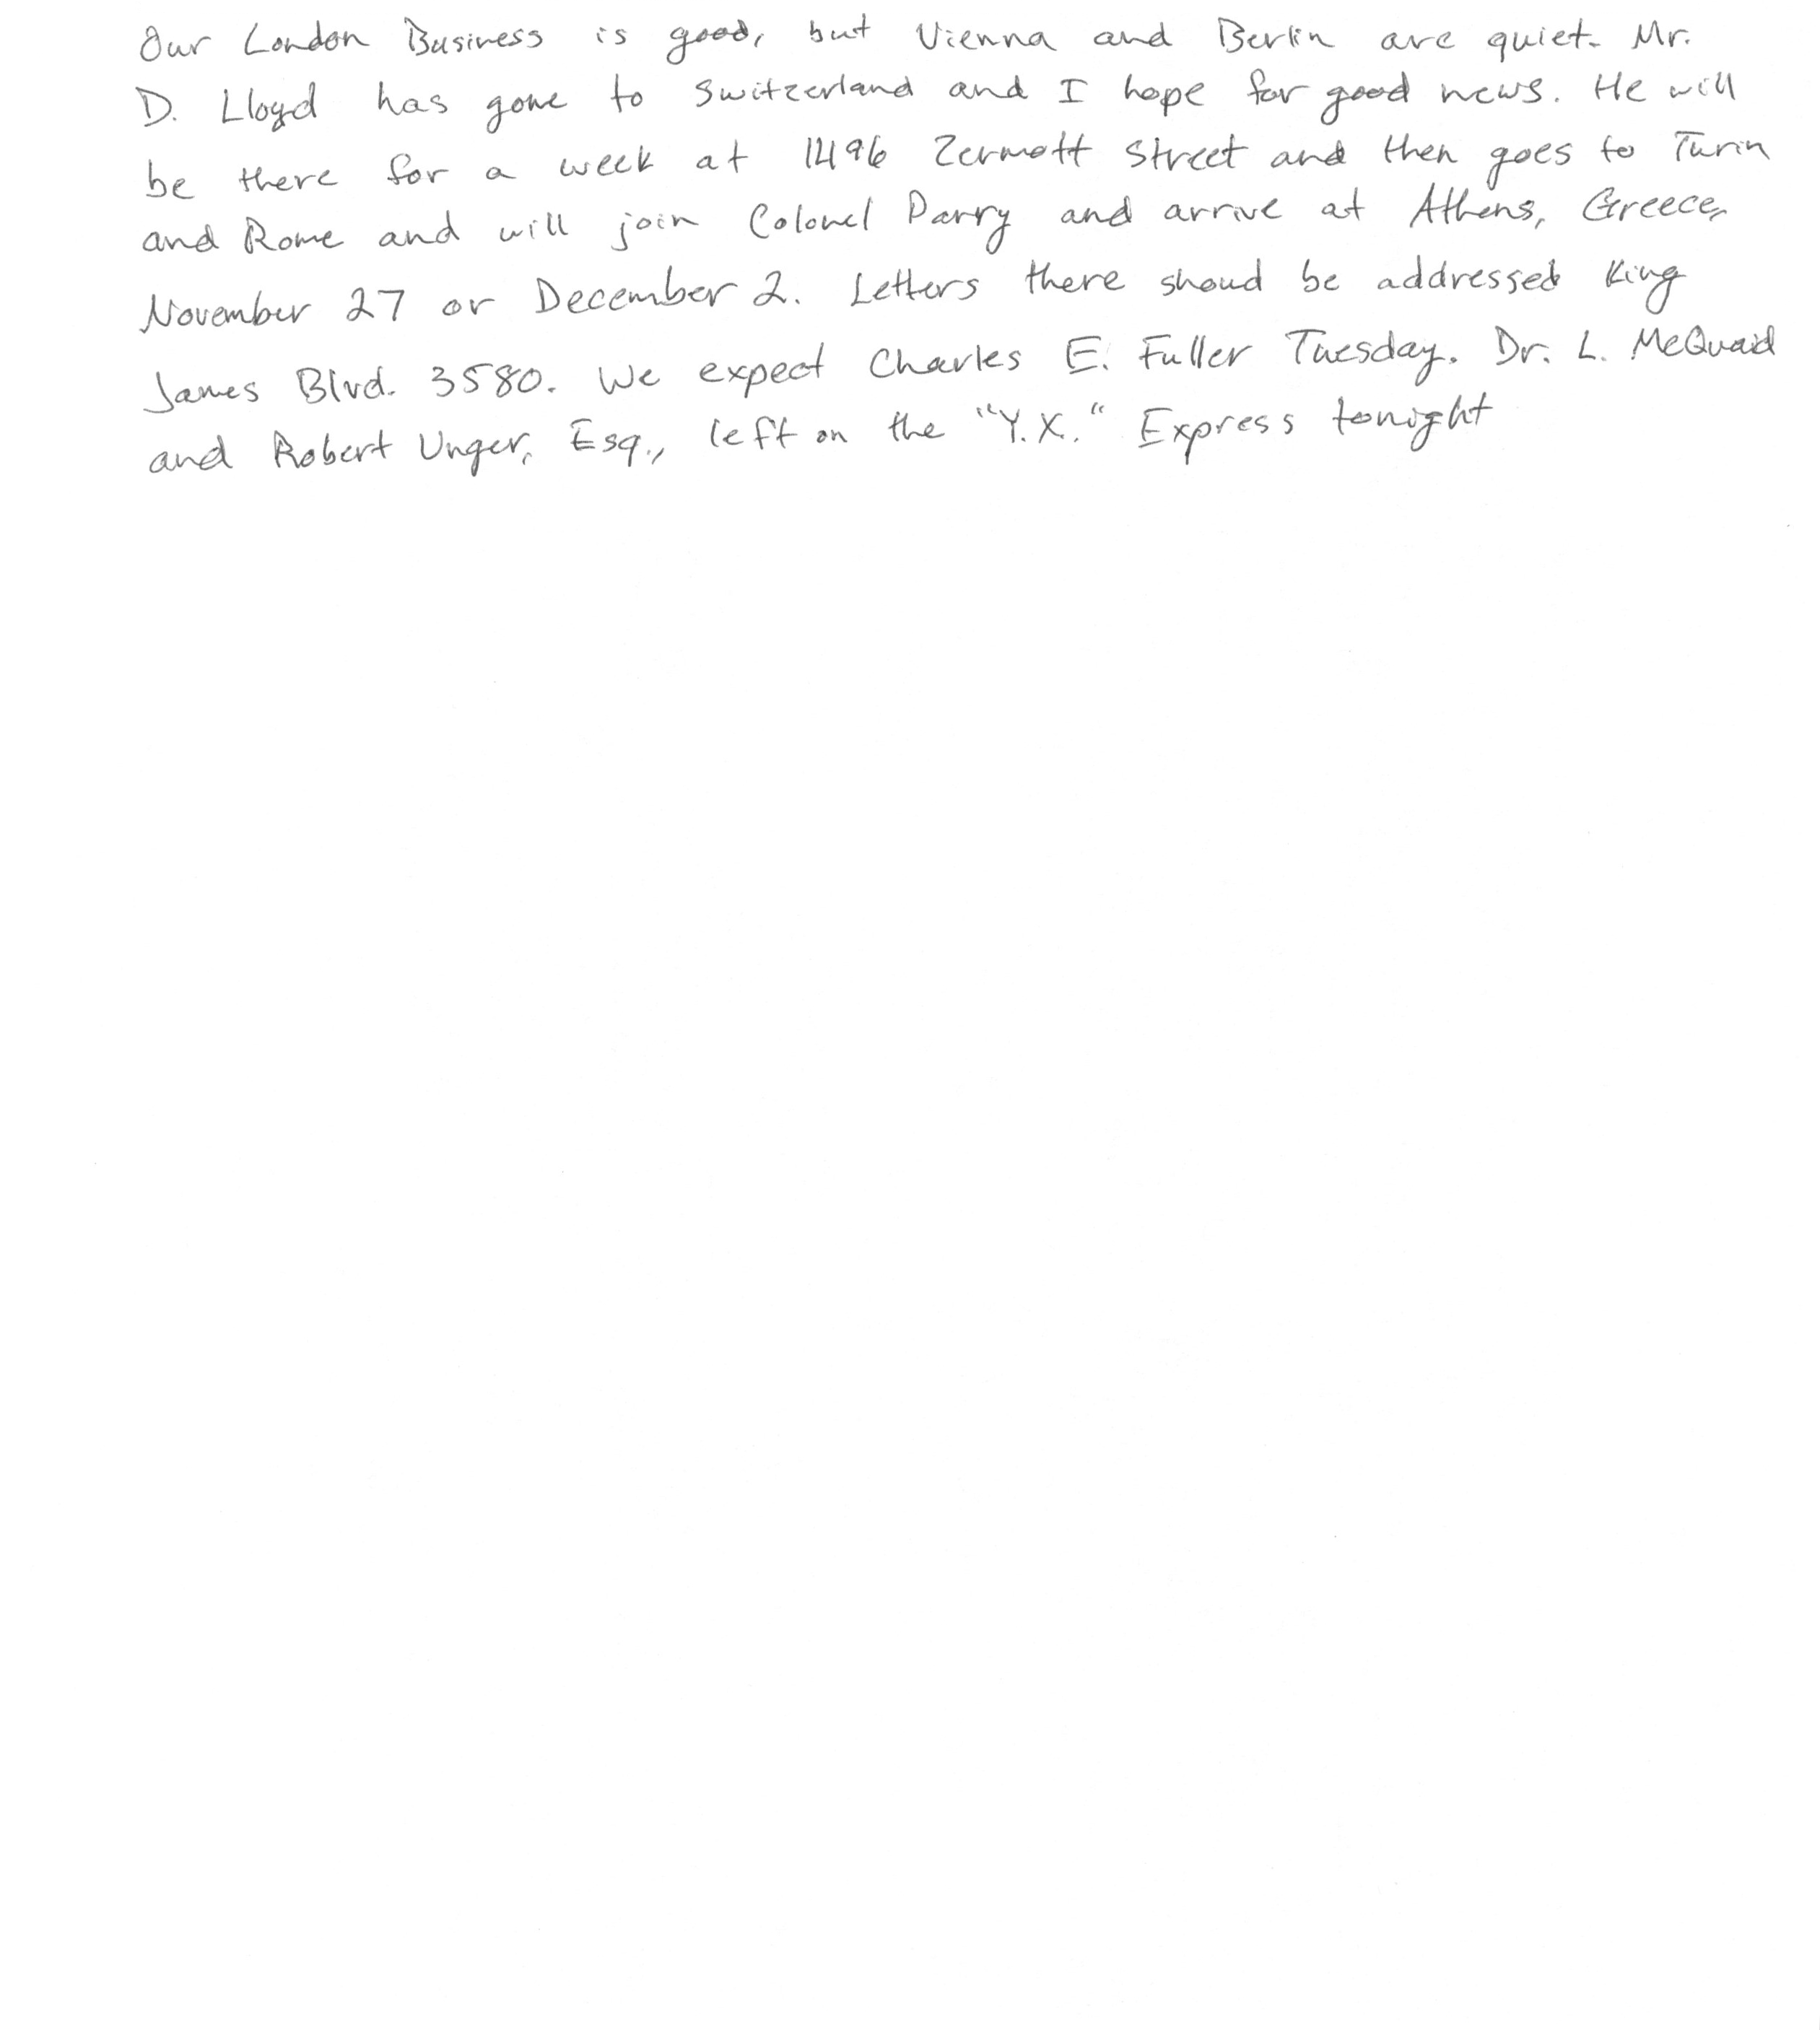 Our London Business is good, but Vienna and Berlin are quiet. Mr.
D. Lloyd has gone to Switzerland and I hope for good news. He will
be there for a week at 1496 Zermott Street and then goes to Turin
and Rome and will join Colonel Parry and arrive at Athens, Greece,
November 27 or December 2. Letters there shoud be addressed King
James Blvd. 3580. We expect Charles E. Fuller Tuesday. Dr. L. McQuaid
and Robert Unger, Esq., left on the "Y.X." Express tonight